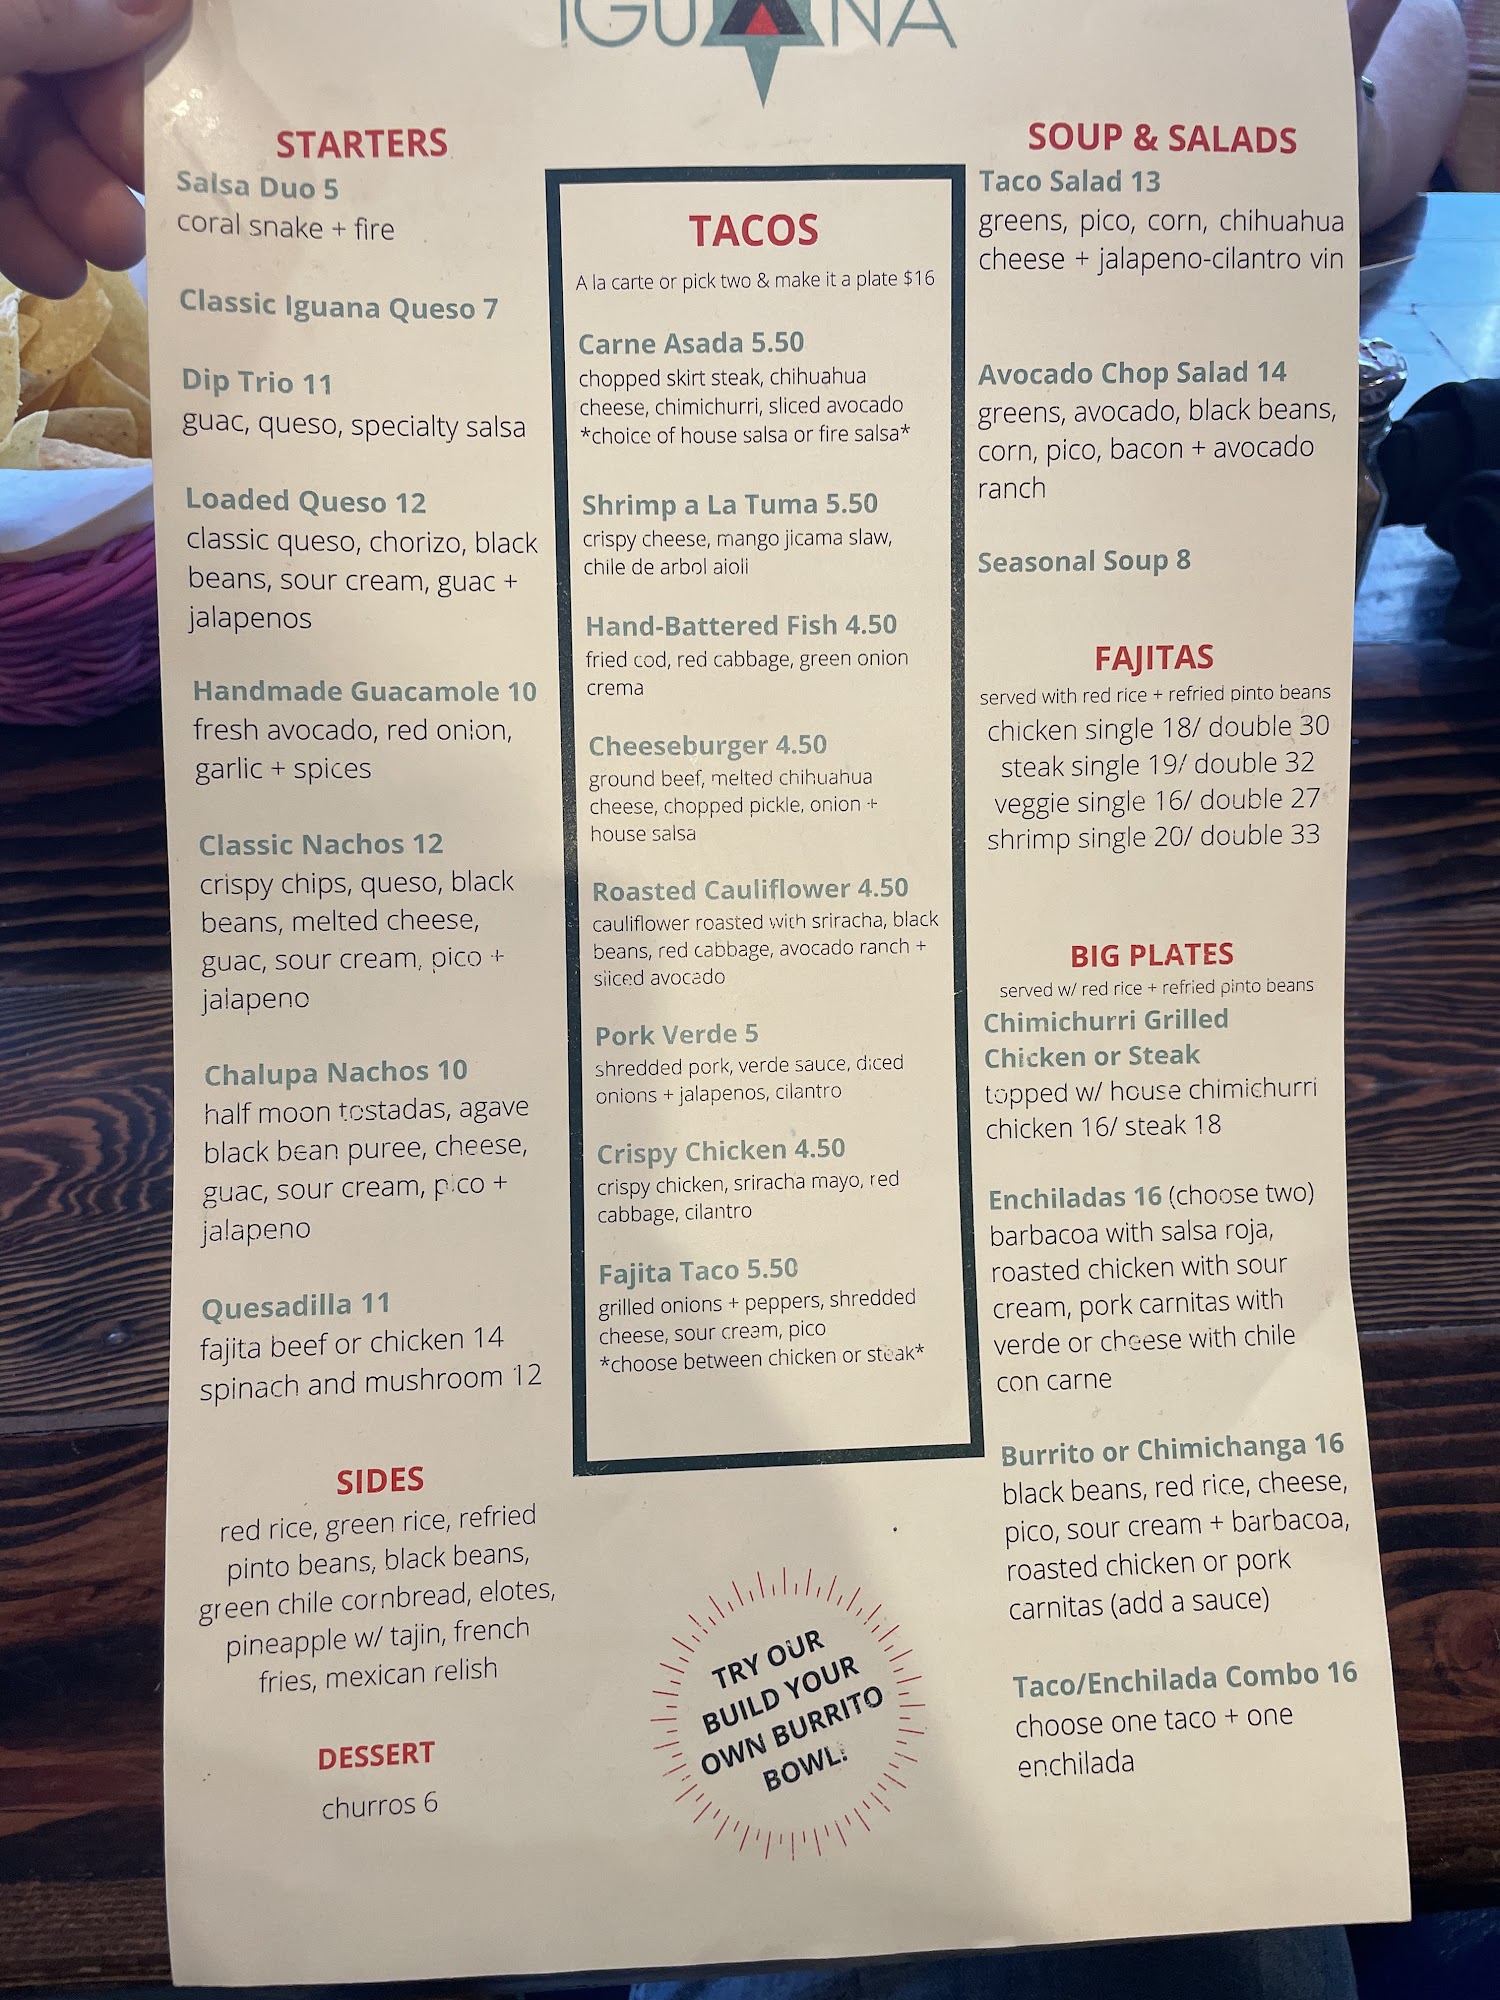 IGUANA
STARTERS
Salsa Duo 5
coral snake + fire
Classic Iguana Queso 7
Dip Trio 11
guac, queso, specialty salsa
Loaded Queso 12
classic queso, chorizo, black
beans, sour cream, guac +
jalapenos
Handmade Guacamole 10
fresh avocado, red onion,
garlic + spices
Classic Nachos 12
crispy chips, queso, black
beans, melted cheese,
guac, sour cream, pico +
jalapeno
Chalupa Nachos 10
half moon tostadas, agave
black bean puree, cheese,
guac, sour cream, pico +
jalapeno
Quesadilla 11
fajita beef or chicken 14
spinach and mushroom 12
SIDES
red rice, green rice, refried
pinto beans, black beans,
green chile cornbread, elotes,
pineapple w/ tajin, french
fries, mexican relish
DESSERT
churros 6
TACOS
A la carte or pick two & make it a plate $16
Carne Asada 5.50
chopped skirt steak, chihuahua
cheese, chimichurri, sliced avocado
*choice of house salsa or fire salsa*
Shrimp a La Tuma 5.50
crispy cheese, mango jicama slaw,
chile de arbol aioli
Hand-Battered Fish 4.50
fried cod, red cabbage, green onion
crema
Cheeseburger 4.50
ground beef, melted chihuahua
cheese, chopped pickle, onion +
house salsa
Roasted Cauliflower 4.50
cauliflower roasted with sriracha, black
beans, red cabbage, avocado ranch +
sliced avocado
Pork Verde 5
shredded pork, verde sauce, diced
onions + jalapenos, cilantro
Crispy Chicken 4.50
crispy chicken, sriracha mayo, red
cabbage, cilantro
Fajita Taco 5.50
grilled onions + peppers, shredded
cheese, sour cream, pico
*choose between chicken or steak*
TRY OUR
BUILD YOUR
OWN BURRITO
BOWL!
SOUP & SALADS
Taco Salad 13
greens, pico, corn, chihuahua
cheese + jalapeno-cilantro vin
Avocado Chop Salad 14
greens, avocado, black beans,
corn, pico, bacon + avocado
ranch
Seasonal Soup 8
FAJITAS
served with red rice + refried pinto beans
chicken single 18/ double 30
steak single 19/ double 32
veggie single 16/ double 27
shrimp single 20/ double 33
BIG PLATES
served w/ red rice + refried pinto beans
Chimichurri Grilled
Chicken or Steak
topped w/ house chimichurri
chicken 16/ steak 18
Enchiladas 16 (choose two)
barbacoa with salsa roja,
roasted chicken with sour
cream, pork carnitas with
verde or cheese with chile
con carne
Burrito or Chimichanga 16
black beans, red rice, cheese,
pico, sour cream + barbacoa,
roasted chicken or pork
carnitas (add a sauce)
Taco/Enchilada Combo 16
choose one taco + one
enchilada